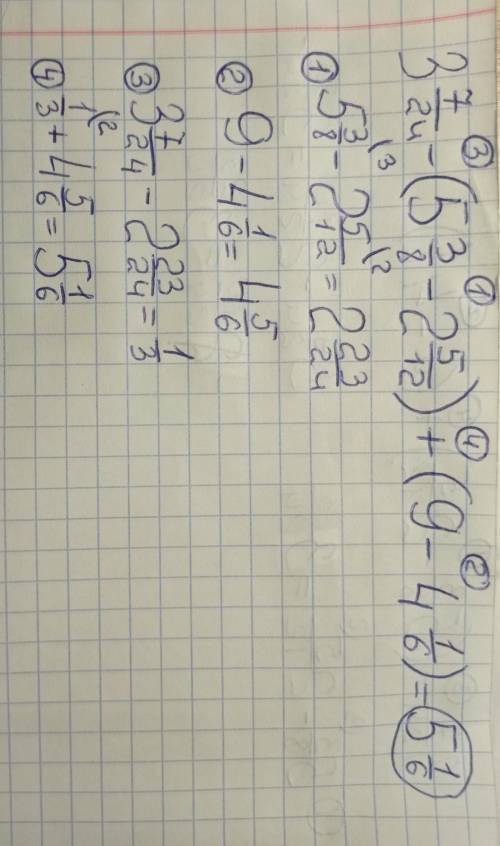 3 7/24 - ③ (5 3/8 - ① 2 5/12) + ④ (9 - ② 4 1/6) = 5 1/6
① 5 3/8 \3 - 2 5/12 \2 = 2 23/24
② 9 - 4 1/6 = 4 5/6
③ 3 7/24 - 2 23/24 = 1/3
④ 1/3 \2 + 4 5/6 = 5 1/6